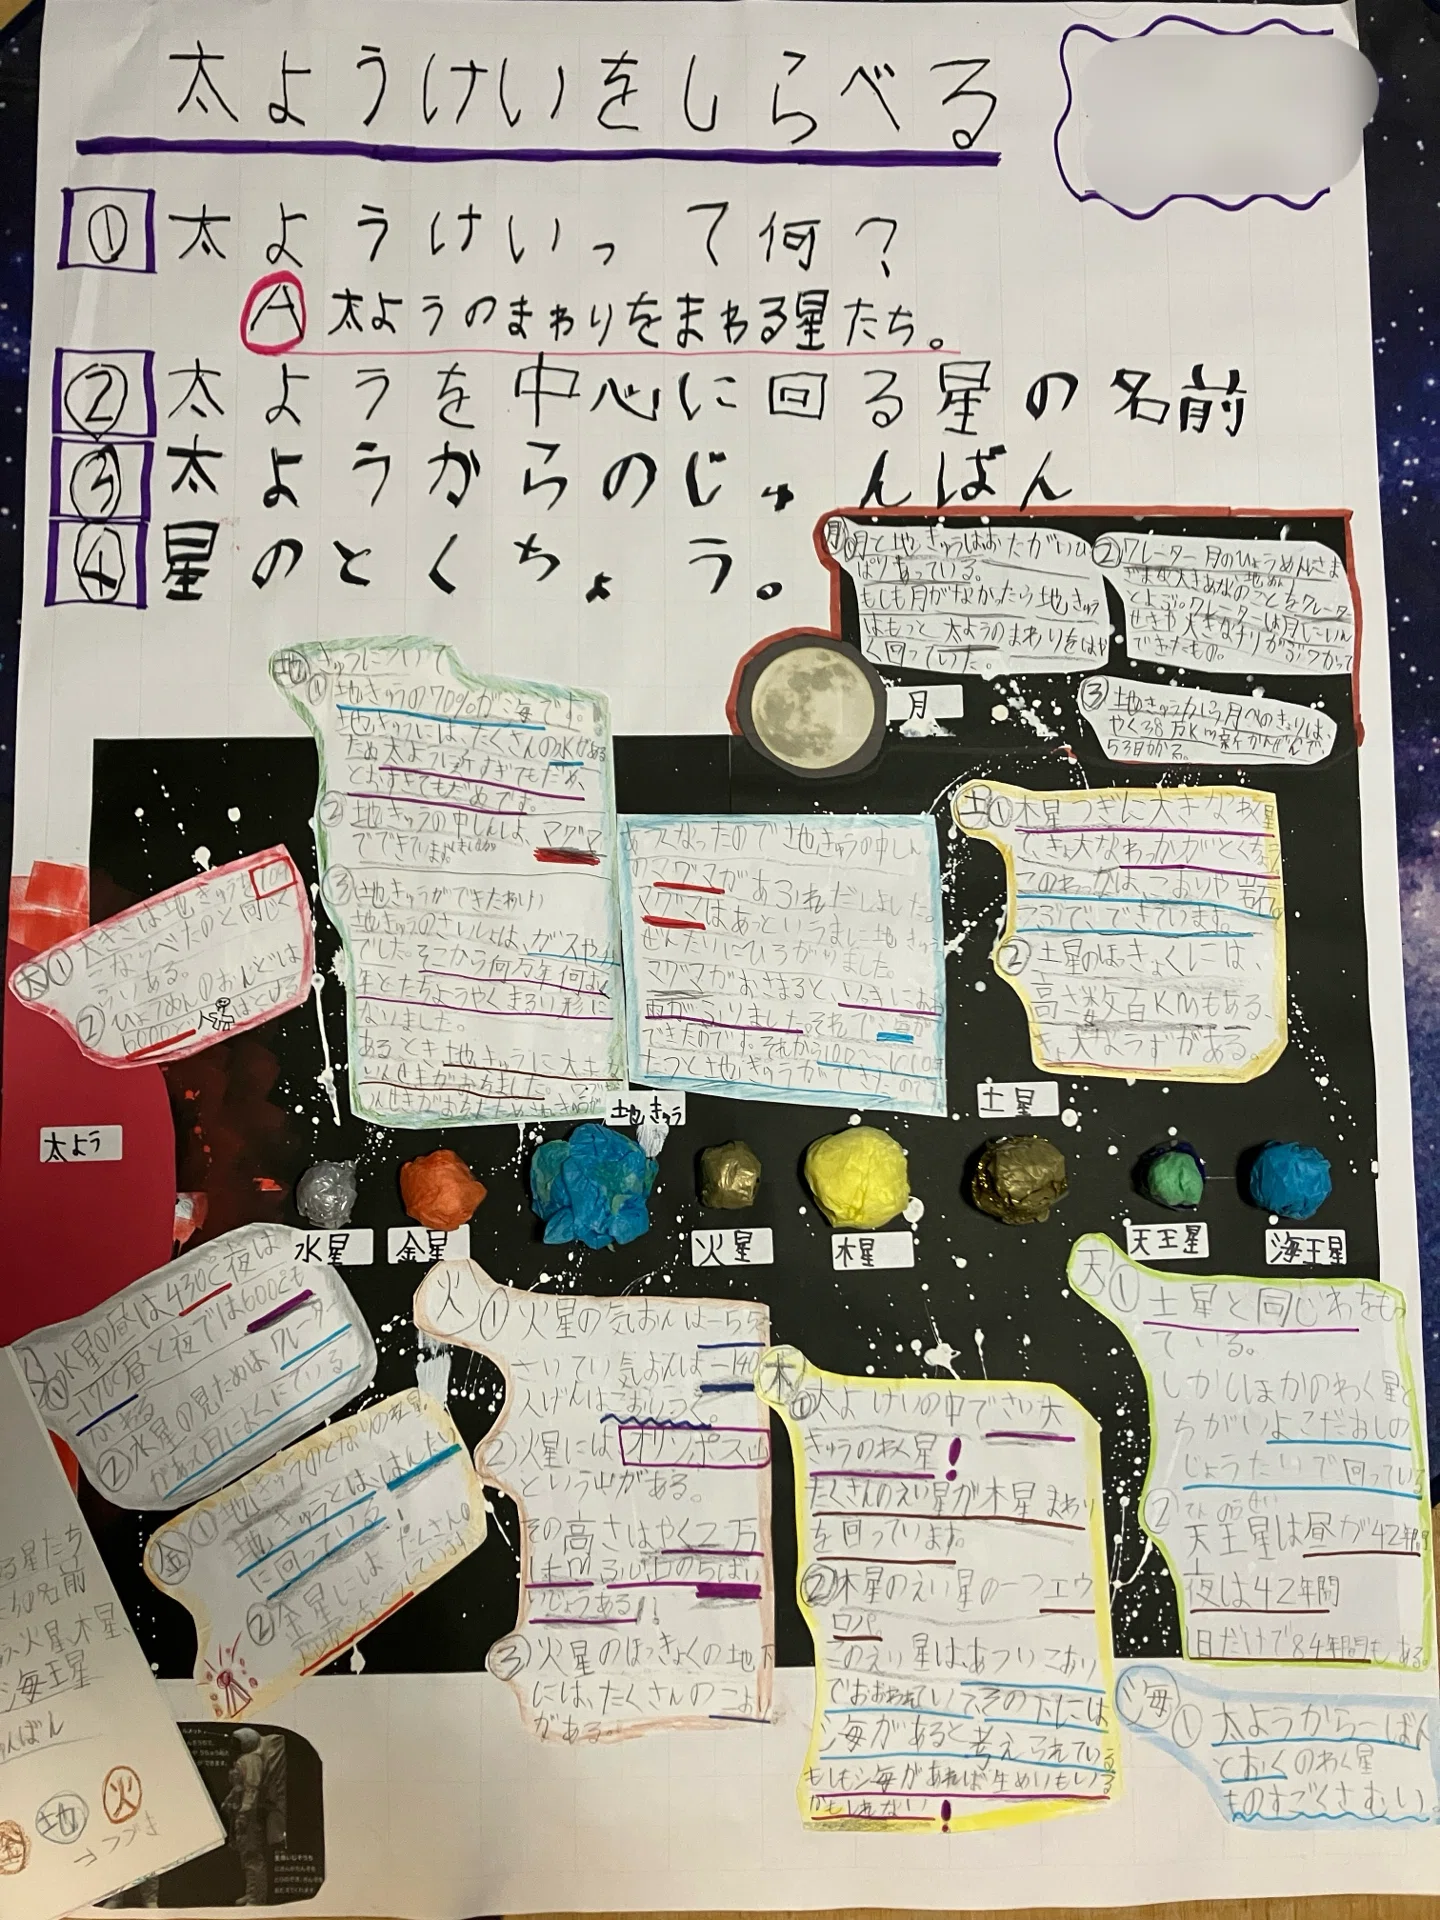 太ようけいをしらべる
① 太ようけいって何?
A 太ようのまわりをまわる星たち。
② 太ようを中心に回る星の名前
③ 太ようからのじゅんばん
④ 星のとくちょう。
月 ①月と地きゅうはおたがいひ
ぱりあっている。
もしも月がなかったら地きゅう
はもっと太ようのまわりをはや
く回っていた。
②クレーター月のひょうめんにさま
ざまな大きあなのことをクレーター
とよぶ。クレーターは月にいん
せきや大きなチリがぶつかって
できたもの。
③地きゅうから月へのきょりは、
やく38万Km新かんせんで
53日かかる。
月
地きゅうについて
①地きゅうの70%が海です。
地きゅうには、たくさんの水がある
ため太ように近すぎてもだめ、
とおすぎてもだめです。
②地きゅうの中しんは、マグマ
でできています。
③地きゅうができたわけ
地きゅうのさいしょは、ガスや
でした。そこから何万年何おく
年とたちようやくまるい形に
なりました。
あるとき地きゅうに大きな
いんせきがおちました。
いんせきがおちたため
あつくなったので地きゅうの中しん
のマグマがあふれだしました。
マグマはあっというまに地きゅう
ぜんたいにひろがりました。
マグマがおさまると、いっきにおお
雨がふりました。それで、海が
できたのです。それから
たつと地きゅうができたのです
土 ①木星つぎに大きなわく星
できょ大なわっかがとくちょう
このわっかは、こおりや岩石の
つぶで、できています。
②土星のほっきょくには、
高さ数百Kmもある、
きょ大なうずがある。
太 ①大きさは地きゅうを109
こならべたのと同じく
らいある。
②ひょうめんのおんどは
6000ど
太よう
地きゅう
土星
水星
金星
火星
木星
天王星
海王星
水 ①水星の昼は430℃夜は
-170℃昼と夜では600℃も
②水星の見ためはクレーター
があって月によくにている
金 ①地きゅうのとなりのわく星
地きゅうとは、はんたい
に回っている!
②金星には、たくさんの
火 ①火星の気おんは-55
さいてい気おんは-140
人げんはこおりつく。
②火星にはオリンポス山
という山がある。
その高さはやく2万
③火星のほっきょくの地下
には、たくさんのこおり
がある。
木 ①太よけいの中でさい大
きゅうのわく星!
たくさんのえい星が木星まわり
を回っています。
②木星のえい星の一つエウ
ロパ。
このえい星は、あついこおり
でおおわれていてその下には
海があると考えられている
もしも海があれば生めいもいる
かもしれない!
天 ①土星と同じわをもっ
ている。
しかしほかのわく星と
ちがいよこだおしの
じょうたいで回っている
②天王星は昼が42年間
夜は42年間
1日だけで84年間もある。
海 ①太ようから一ばん
とおくのわく星
ものすごくさむい。
る星たち
の名前
火星、木星、
海王星
んばん
金 地 火
→つづき